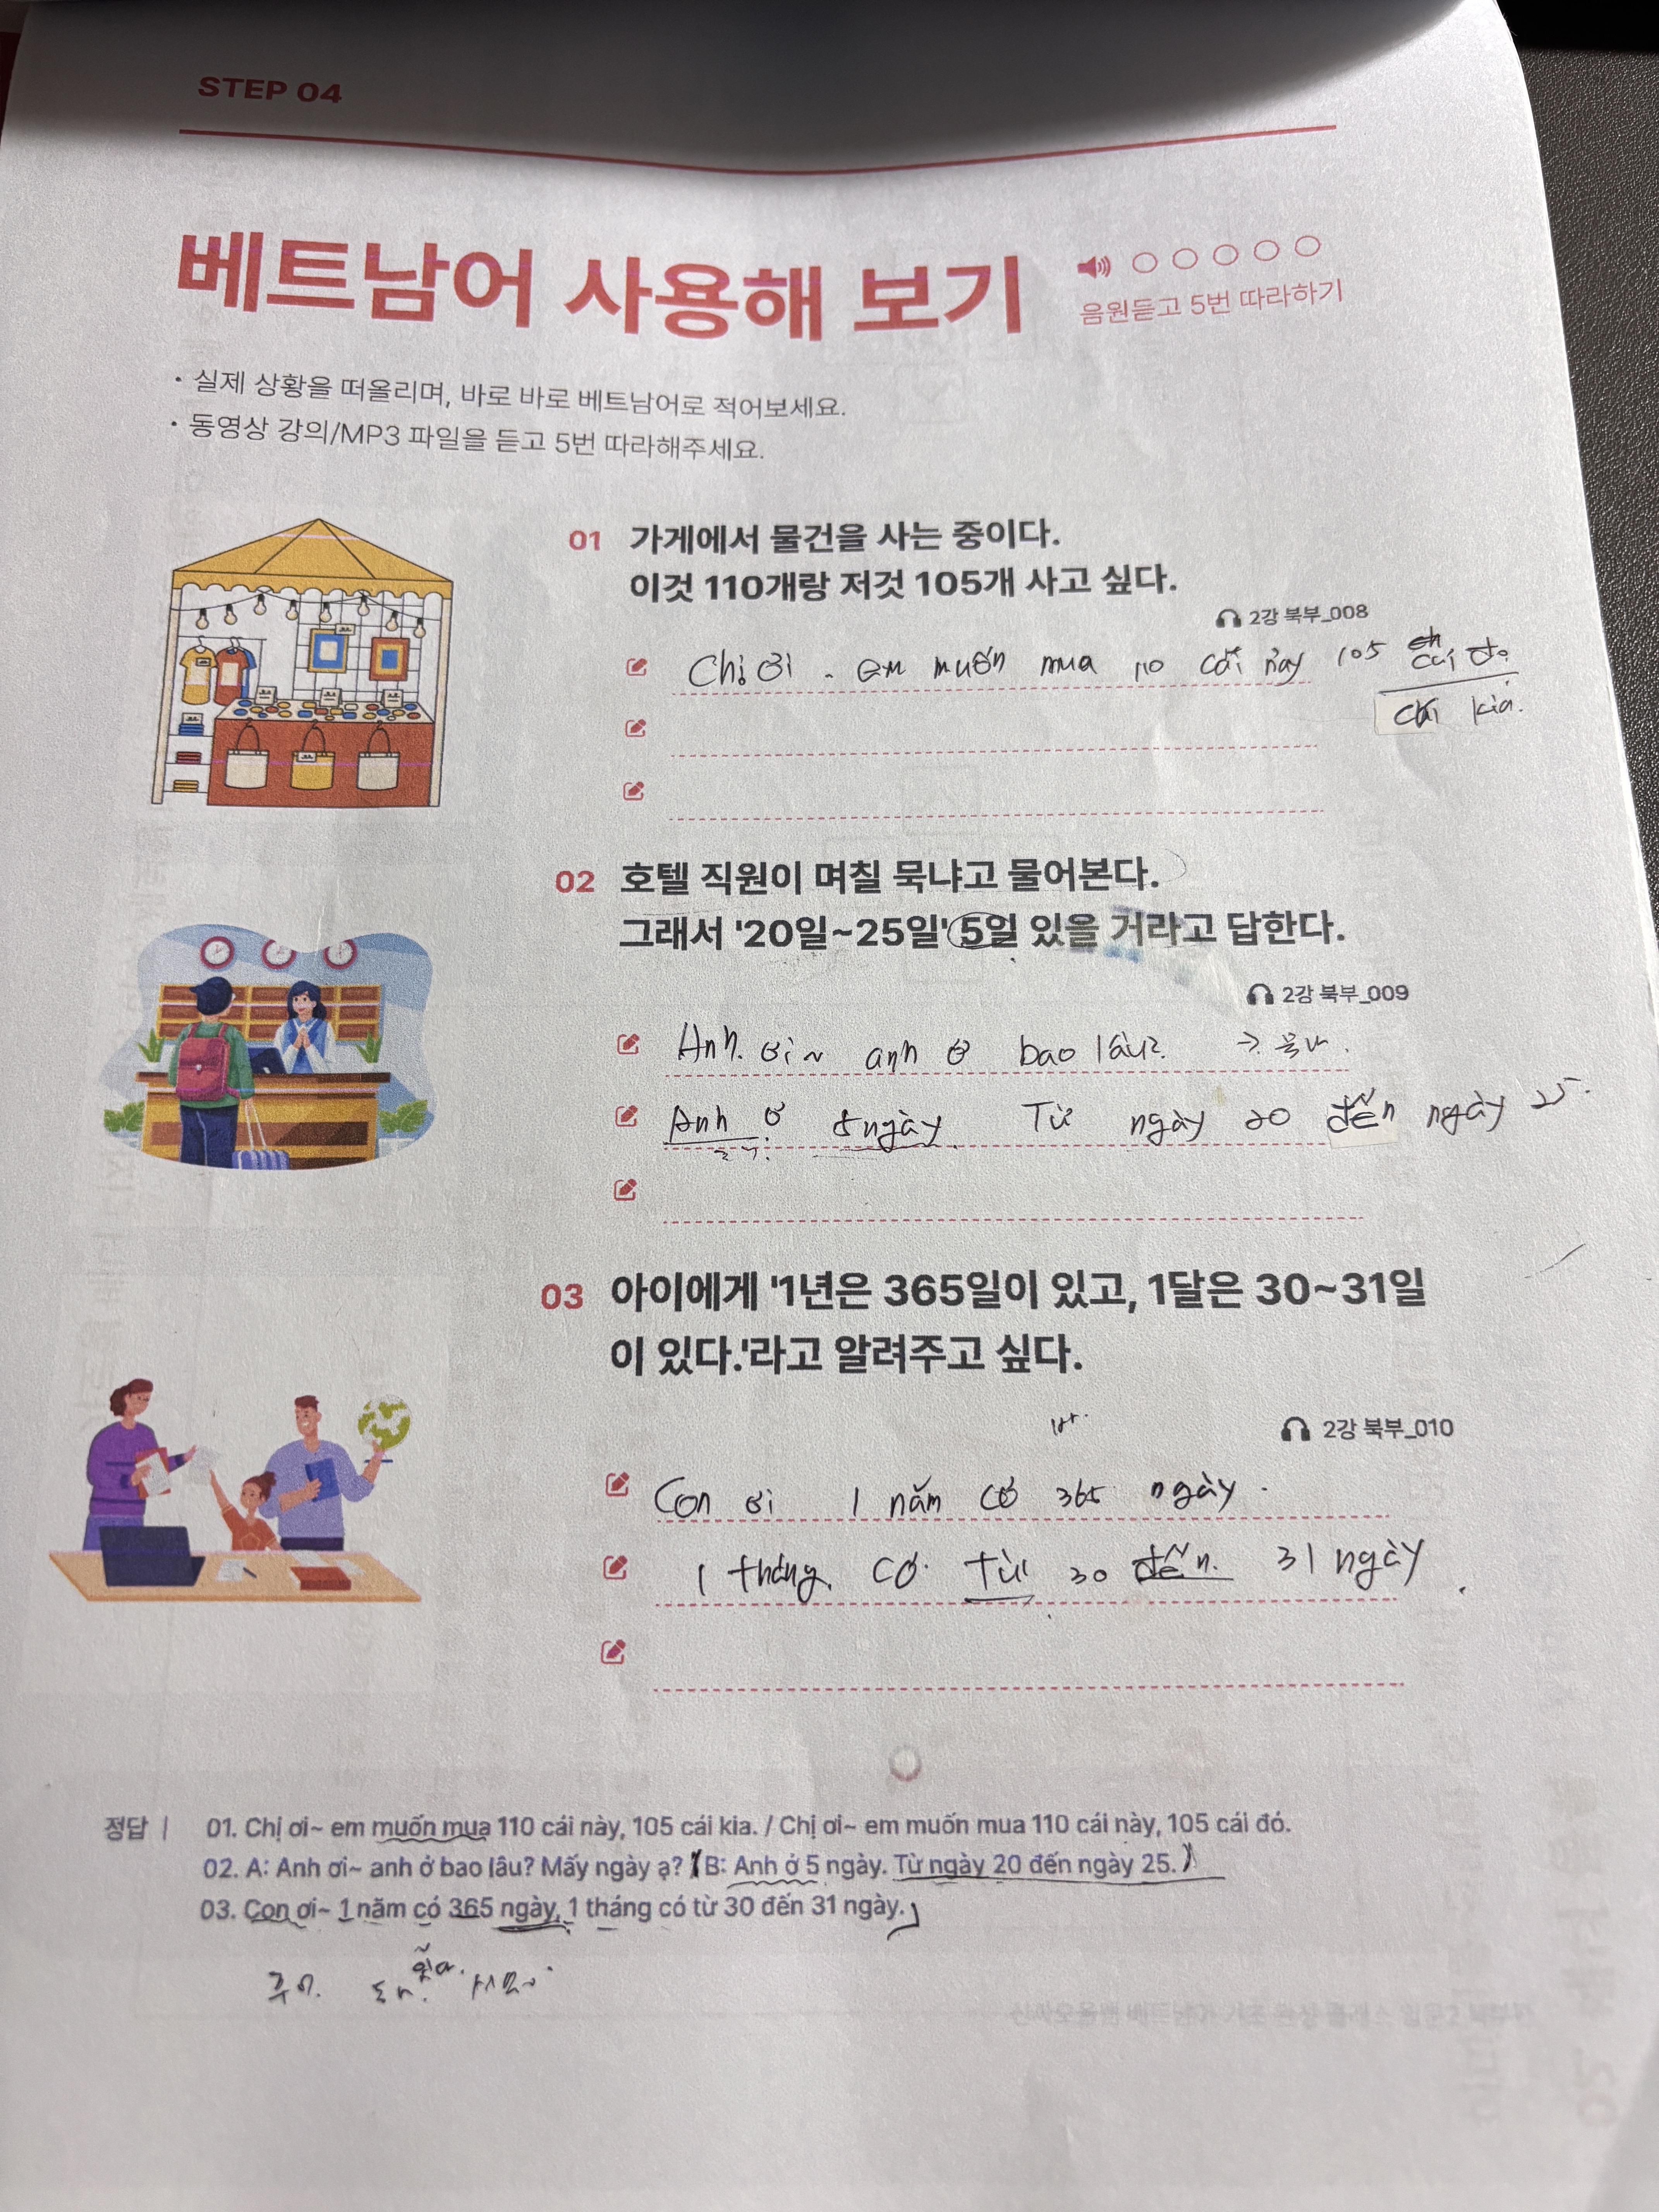 STEP 04
베트남어 사용해 보기
음원듣고 5번 따라하기
• 실제 상황을 떠올리며, 바로 바로 베트남어로 적어보세요.
• 동영상 강의/MP3 파일을 듣고 5번 따라해주세요.
01 가게에서 물건을 사는 중이다.
이것 110개랑 저것 105개 사고 싶다.
2강 북부_008
Chị ơi . em muốn mua 110 cái này 105 cái đó
cái kia.
02 호텔 직원이 며칠 묵냐고 물어본다.
그래서 '20일~25일' 5일 있을 거라고 답한다.
2강 북부_009
Anh. ơi ~ anh ở bao lâu?
Anh ở 5 ngày. Từ ngày 20 đến ngày 25.
03 아이에게 '1년은 365일이 있고, 1달은 30~31일
이 있다.'라고 알려주고 싶다.
2강 북부_010
Con ơi 1 năm có 365 ngày.
1 tháng. có từ 30 đến. 31 ngày.
정답 | 01. Chị ơi~ em muốn mua 110 cái này, 105 cái kia. / Chị ơi~ em muốn mua 110 cái này, 105 cái đó.
02. A: Anh ơi~ anh ở bao lâu? Mấy ngày ạ? / B: Anh ở 5 ngày. Từ ngày 20 đến ngày 25.
03. Con ơi~ 1 năm có 365 ngày, 1 tháng có từ 30 đến 31 ngày.